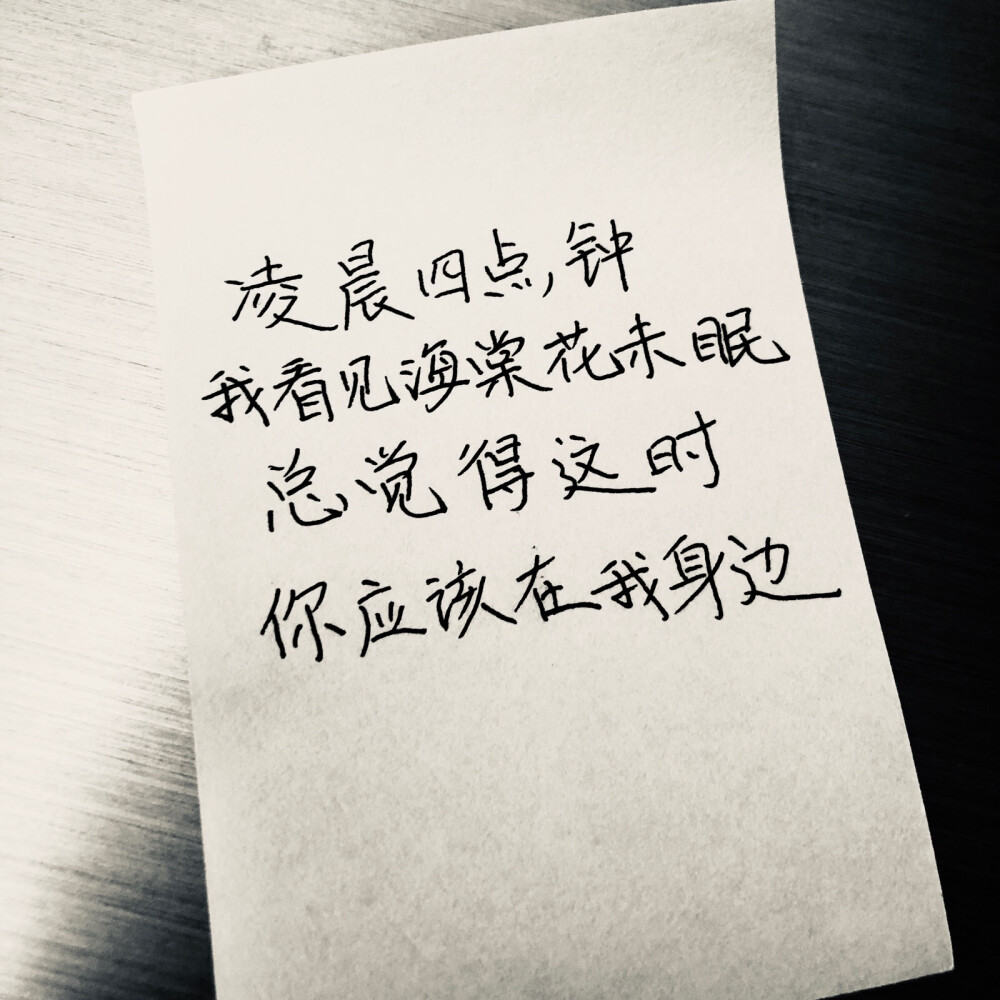 凌晨四点钟
我看见海棠花未眠
总觉得这时
你应该在我身边